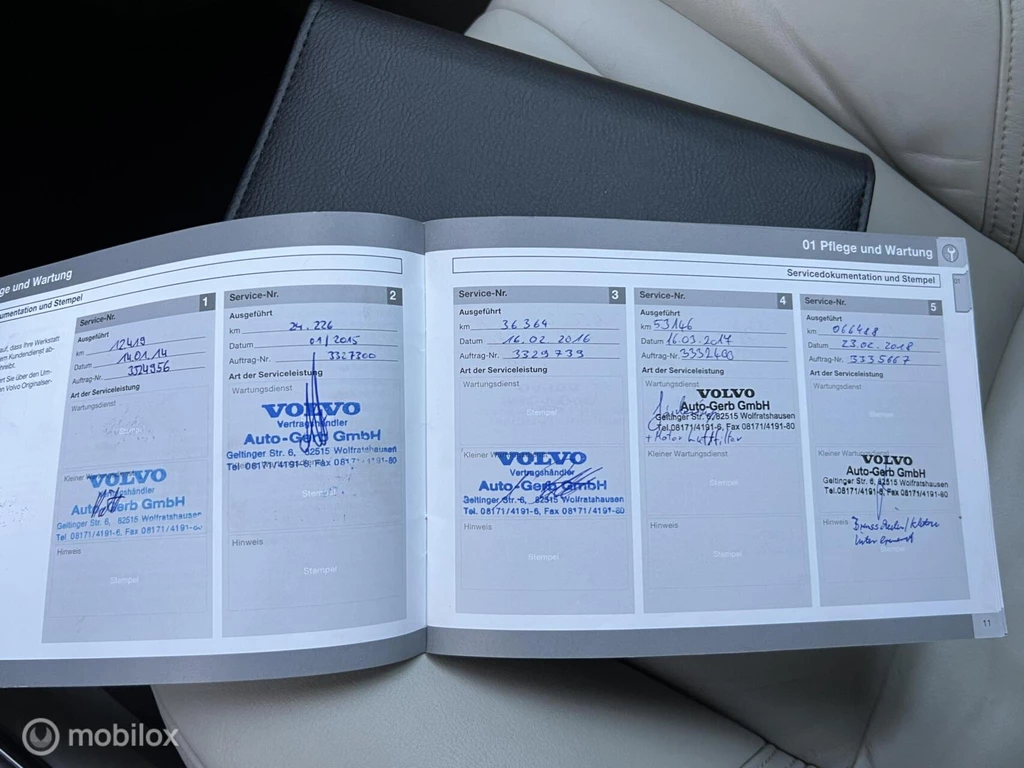 ge und Wartung
umentation und Stempel
auf, dass Ihre Werkstatt
em Kundendienst ab-
hreibt.
en Sie über den Um-
en Volvo Originalser-
Service-Nr. 1
Ausgeführt
km 12419
Datum 14.01.14
Auftrag-Nr. 3324956
Art der Serviceleistung
Wartungsdienst
Stempel
Kleiner
VOLVO
Vertragshändler
Auto-Gerb GmbH
Geltinger Str. 6, 82515 Wolfratshausen
Tel. 08171/4191-6, Fax 08171/4191-80
Hinweis
Stempel
Service-Nr. 2
Ausgeführt
km 24.226
Datum 01/2015
Auftrag-Nr. 3327300
Art der Serviceleistung
Wartungsdienst
VOLVO
Vertragshändler
Auto-Gerb GmbH
Geltinger Str. 6, 82515 Wolfratshausen
Tel. 08171/4191-6, Fax 08171/4191-80
Stempel
Hinweis
Stempel
01 Pflege und Wartung
Servicedokumentation und Stempel
01
Service-Nr. 3
Ausgeführt
km 36364
Datum 16.02.2016
Auftrag-Nr. 3329739
Art der Serviceleistung
Wartungsdienst
Stempel
Kleiner
VOLVO
Vertragshändler
Auto-Gerb GmbH
Geltinger Str. 6, 82515 Wolfratshausen
Tel. 08171/4191-6, Fax 08171/4191-80
Hinweis
Stempel
Service-Nr. 4
Ausgeführt
km 53146
Datum 16.03.2017
Auftrag-Nr. 3332400
Art der Serviceleistung
Wartungsdienst
VOLVO
Auto-Gerb GmbH
Geltinger Str. 6, 82515 Wolfratshausen
Tel.08171/4191-6, Fax 08171/4191-80
+ Motor Luftfilter
Kleiner Wartungsdienst
Stempel
Hinweis
Stempel
Service-Nr. 5
Ausgeführt
km 066488
Datum 23.02.2018
Auftrag-Nr. 3335667
Art der Serviceleistung
Wartungsdienst
Stempel
Kleiner Wartungsdienst
VOLVO
Auto-Gerb GmbH
Geltinger Str. 6, 82515 Wolfratshausen
Tel.08171/4191-6, Fax 08171/4191-80
Hinweis
Stempel
11
mobilox